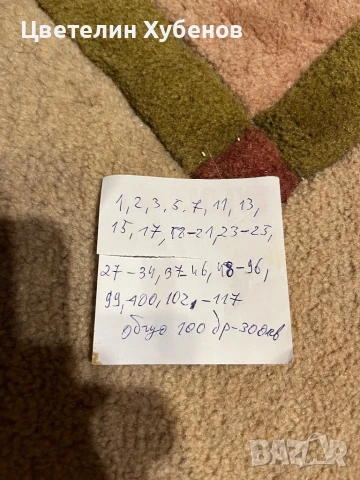 Цветелин Хубенов
1, 2, 3, 5, 7, 11, 13,
15, 17, 18-21, 23-25,
27-34, 37-46, 48-96,
99, 100, 102, -117
общо 100 бр-300лв
BAZAR